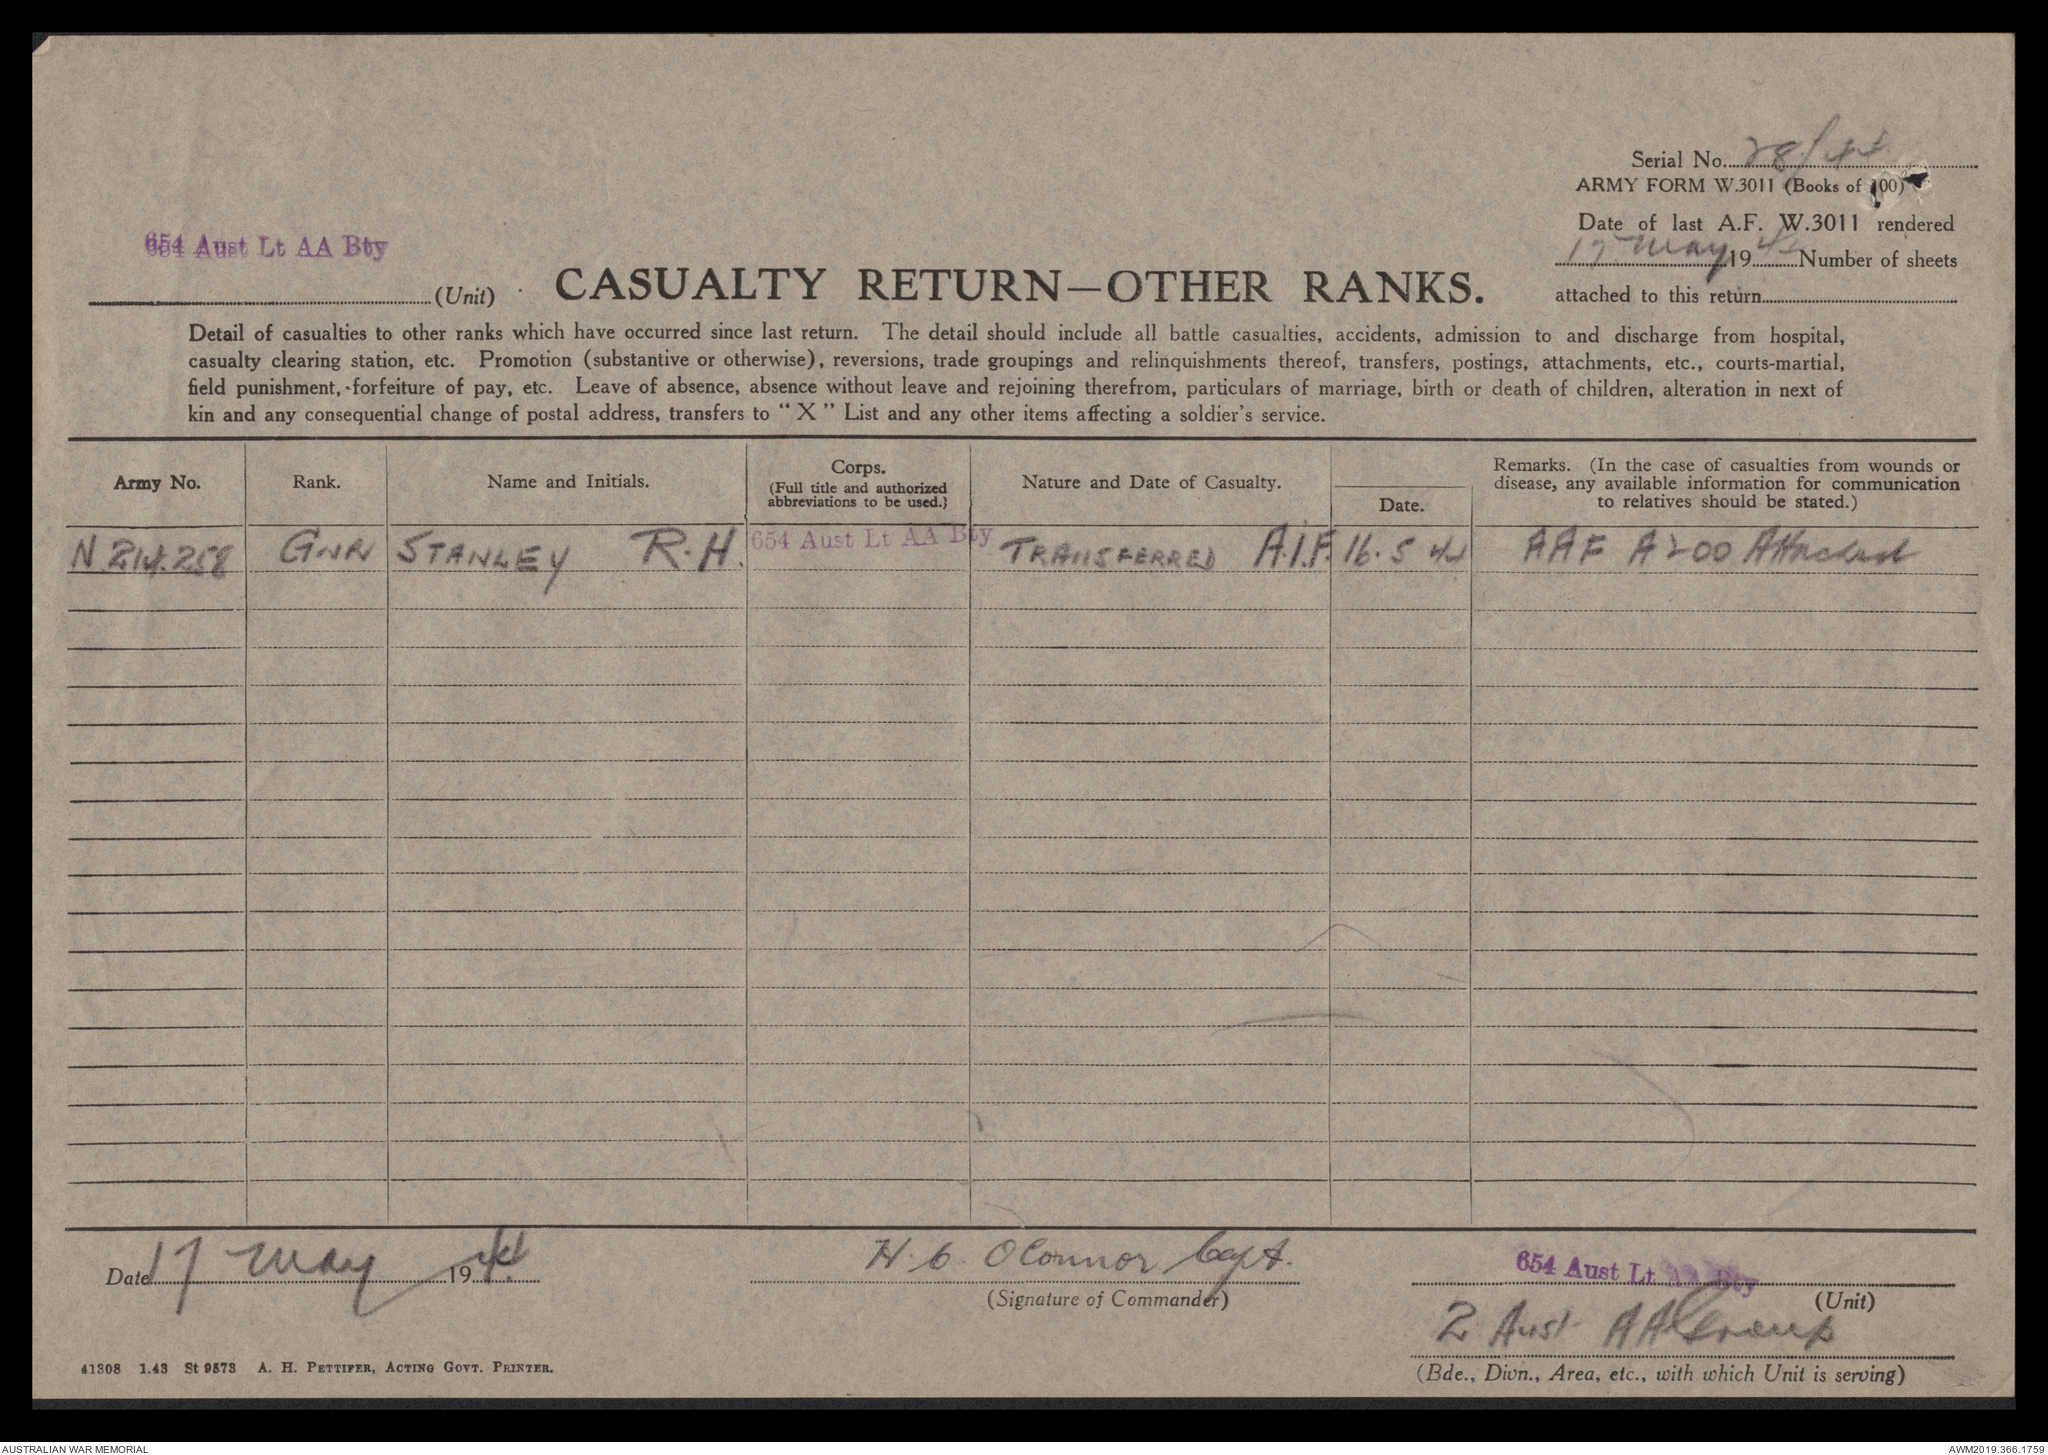 Serial No. 28/44
ARMY FORM W.3011 (Books of 100)
Date of last A.F. W.3011 rendered
17 May 1944 Number of sheets
attached to this return
654 Aust Lt AA Bty
(Unit)
CASUALTY RETURN—OTHER RANKS.
Detail of casualties to other ranks which have occurred since last return. The detail should include all battle casualties, accidents, admission to and discharge from hospital,
casualty clearing station, etc. Promotion (substantive or otherwise), reversions, trade groupings and relinquishments thereof, transfers, postings, attachments, etc., courts-martial,
field punishment, forfeiture of pay, etc. Leave of absence, absence without leave and rejoining therefrom, particulars of marriage, birth or death of children, alteration in next of
kin and any consequential change of postal address, transfers to “ X ” List and any other items affecting a soldier's service.
Army No. Rank. Name and Initials. Corps. (Full title and authorized abbreviations to be used.) Nature and Date of Casualty. Date. Remarks. (In the case of casualties from wounds or disease, any available information for communication to relatives should be stated.)
N 214258 GNR STANLEY R.H. 654 Aust Lt AA Bty TRANSFERRED A.I.F. 16.5 44 AAF A200 Attached
Date 17 May 1944
H. C. OConnor Capt.
(Signature of Commander)
654 Aust Lt AA Bty
(Unit)
2 Aust AA Group
(Bde., Divn., Area, etc., with which Unit is serving)
41308 1.43 St 9573 A. H. PETTIFER, ACTING GOVT. PRINTER.
AUSTRALIAN WAR MEMORIAL
AWM2019.366.1759